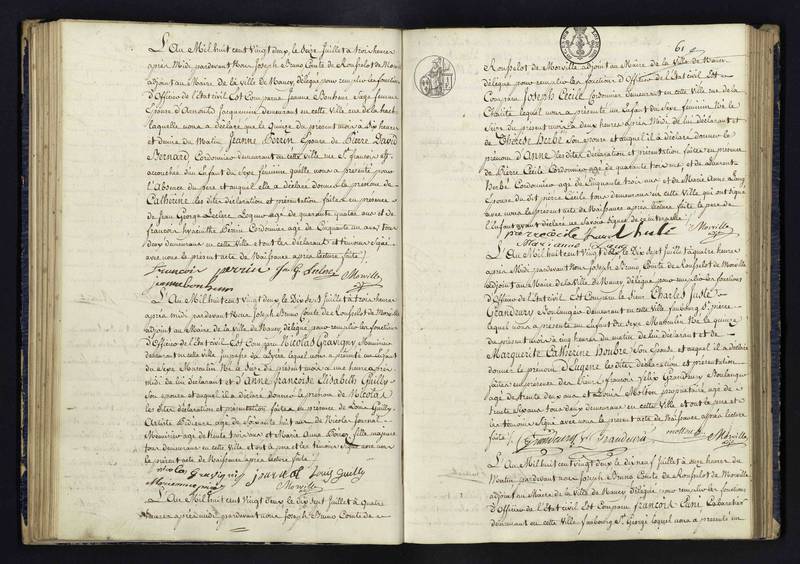 L'An Mil huit cent Vingt deux, le Seize Juillet à trois heures
après Midi pardevant Nous Joseph Bruno Comte de Rousselot de Morville
adjoint au Maire de la Ville de Nancy, délégué pour remplir les fonctions
d'Officier de l'Etat civil Est Comparue Jeanne Bonheur Sage femme
Epouse d'Arnould Jacquemin demeurant en cette Ville rue de la hache
laquelle nous a déclaré que le quinze du présent mois à dix heures
et demie du Matin Jeanne Perrin Epouse de Pierre David
Bernard Cordonnier demeurant en cette Ville rue St françois est
accouchée d'un Enfant du Sexe féminin qu'elle nous a présenté pour
l'Absence du père et auquel elle a déclaré donner le prénom de
Catherine les dites déclaration et présentation faites en présence
de Jean George Leclerc âgé de quarante quatre ans et de
françois hyacinthe Perrin Cordonnier âgé de Cinquante un ans, tous
deux demeurant en cette Ville et ont les déclarante et témoins Signé
avec nous le présent acte de Naissance après lecture faite /.
françois perrin J G Leclerc Morville
jeanne bonheur
L'An Mil huit cent Vingt deux le Dix Sept Juillet à trois heures
après midi pardevant Nous Joseph Bruno Comte de Rousselot de Morville
adjoint au Maire de la Ville de Nancy délégué pour remplir les fonctions
d'Officier de l'Etat civil Est Comparu Nicolas Gravigny Menuisier
demeurant en cette Ville lequel nous a présenté un Enfant
du Sexe Masculin Né le Seize du présent mois à une heure après
midi de lui déclarant et d'Anne françoise Elisabeth Guilly
Son épouse et auquel il a déclaré donner le prénom de Nicolas
les dites déclaration et présentation faites en présence de Louis Guilly
Artiste âgé de Soixante huit ans de Nicolas Journal
Menuisier âgé de trente trois ans et Marie Anne fille majeure
tous demeurant en cette Ville et ont le père et les témoins Signé avec nous
le présent acte de Naissance après lecture faite /.
nicolas Gravigny journal Louis Guilly
Morville
L'An Mil huit cent Vingt deux le dix Sept Juillet à quatre
heures après midi pardevant nous Joseph Bruno Comte de
61
Rousselot de Morville adjoint au Maire de la Ville de Nancy
délégué pour remplir les fonctions d'Officier de l'Etat civil Est
Comparu Joseph Cécile Cordonnier demeurant en cette Ville rue de la
Charité lequel nous a présenté un Enfant du Sexe féminin Née le
Seize du présent mois à deux heures après Midi de lui déclarant et
de Thérèse Herbé Son épouse et auquel il a déclaré donner le
prénom d'Anne les dites déclaration et présentation faites en présence
de Pierre Cécile Cordonnier âgé de quarante trois ans, et de Laurent
Herbé Cordonnier âgé de Cinquante trois ans et de Marie Anne Lang
Epouse du dit pierre Cécile tous demeurant en cette Ville qui ont Signé
avec nous le présent acte de Naissance après lecture faite le père de
l'Enfant ayant déclaré ne Savoir Signer de ce interpellé /.
pierre cecile Morville
Marianne Lang
L'An Mil huit cent Vingt deux le Dix Sept Juillet à quatre heures
après Midi pardevant Nous Joseph Bruno Comte de Rousselot de Morville
adjoint au Maire de la Ville de Nancy délégué pour remplir les fonctions
d'Officier de l'Etat civil Est Comparu le Sieur Charles Juste
Grandeury Boulanger demeurant en cette Ville faubourg St pierre
lequel nous a présenté un Enfant du Sexe Masculin Né le quinze
du présent mois à cinq heures du matin de lui déclarant et de
Marguerite Catherine Houbre Son Epouse et auquel il a déclaré
donner le prénom d'Eugène les dites déclaration et présentation
faites en présence des Sieurs françois félix Grandeury Boulanger
âgé de trente deux ans et Louis Motton propriétaire âgé de
trente Six ans tous deux demeurant en cette Ville et ont le père et
les témoins Signé avec nous le présent acte de Naissance après lecture
faite /. Grandeury Grandeury motton Morville
L'An Mil huit cent Vingt deux le dix neuf Juillet à onze heures du
Matin pardevant nous Joseph Bruno Comte de Rousselot de Morville
adjoint au Maire de la Ville de Nancy délégué pour remplir les fonctions
d'Officier de l'Etat civil Est Comparu françois Cabaretier
demeurant en cette Ville faubourg St George lequel nous a présenté un